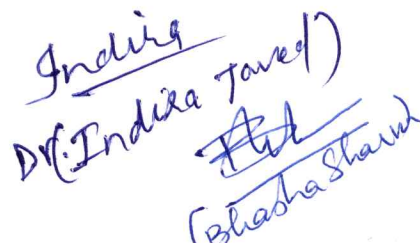 Indira
Dr(.Indira Javed)
(Bhasha Sharma)